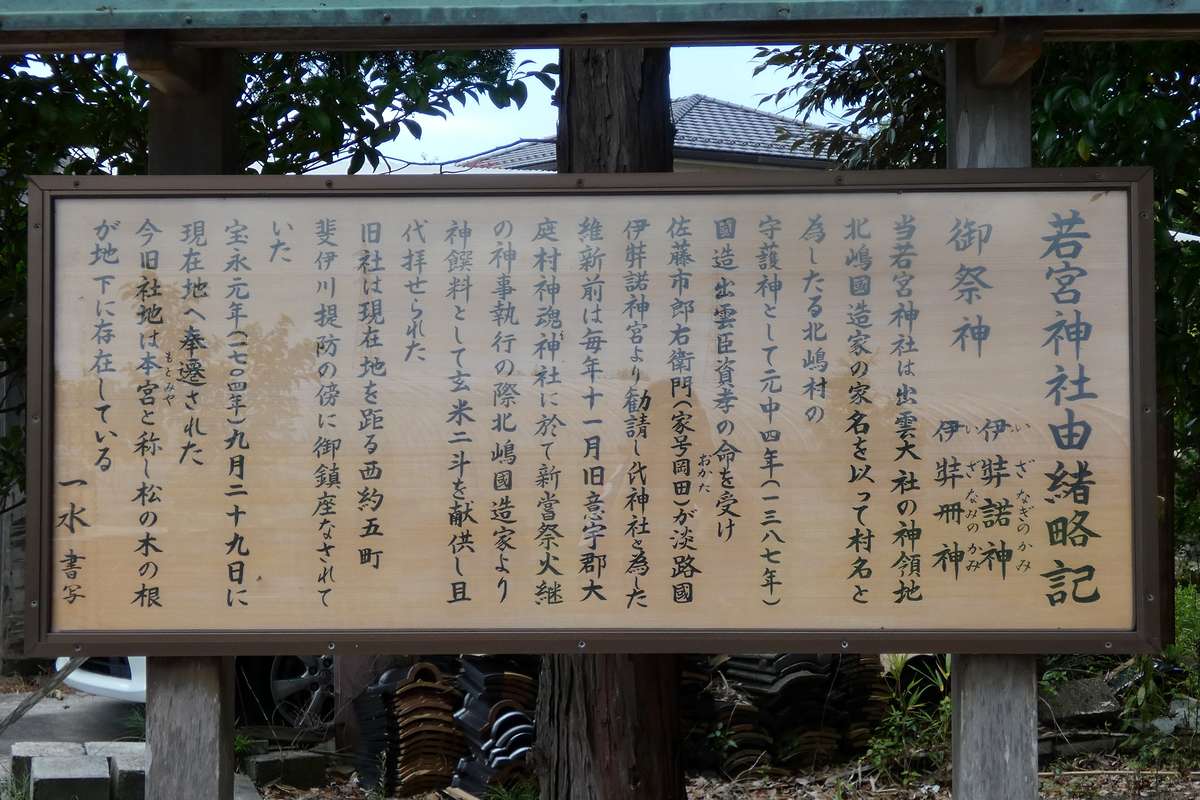 若宮神社由緒略記
御祭神
伊弉諾神
いざなぎのかみ
伊弉冊神
いざなみのかみ
当若宮神社は出雲大社の神領地
北嶋國造家の家名を以って村名と
為したる北嶋村の
守護神として元中四年(一三八七年)
國造出雲臣資孝の命を受け
佐藤市郎右衛門(家号岡田)が淡路國
おかた
伊弉諾神宮より勧請し氏神社と為した
維新前は毎年十一月旧意宇郡大
庭村神魂神社に於て新嘗祭火継
の神事執行の際北嶋國造家より
神饌料として玄米二斗を献供し且
代拝せられた
旧社は現在地を距る西約五町
斐伊川堤防の傍に御鎮座なされて
いた
宝永元年(一七〇四年)九月二十九日に
現在地へ奉遷された
今旧社地は本宮と称し松の木の根
もとみや
が地下に存在している
一水 書写